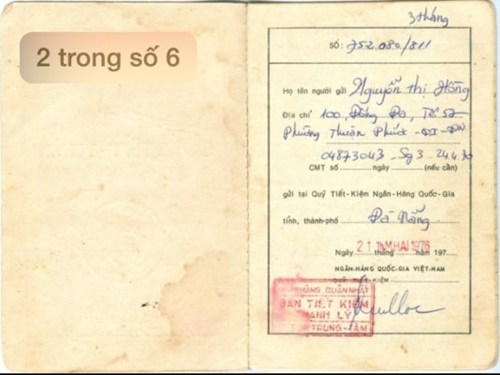 2 trong số 6
3 tháng
SỐ: 752.080/811
Họ tên người gửi Nguyễn Thị Hồng
Địa chỉ 100, Đống Đa, Tổ 57
Phường Thuận Phước - QI - ĐN
04873043 Sg3 24.4.70
CMT số ngày (nếu cần)
gửi tại Quỹ Tiết-Kiệm Ngân-Hàng Quốc-Gia
tỉnh, thành-phố Đà Nẵng
Ngày 21 THÁNG HAI 1976 năm 197
NGÂN-HÀNG QUỐC-GIA VIỆT-NAM
QUỸ TIẾT-KIỆM
QUẬN NHẤT
BAN TIẾT KIỆM
THANH LÝ
TRUNG-TÂM